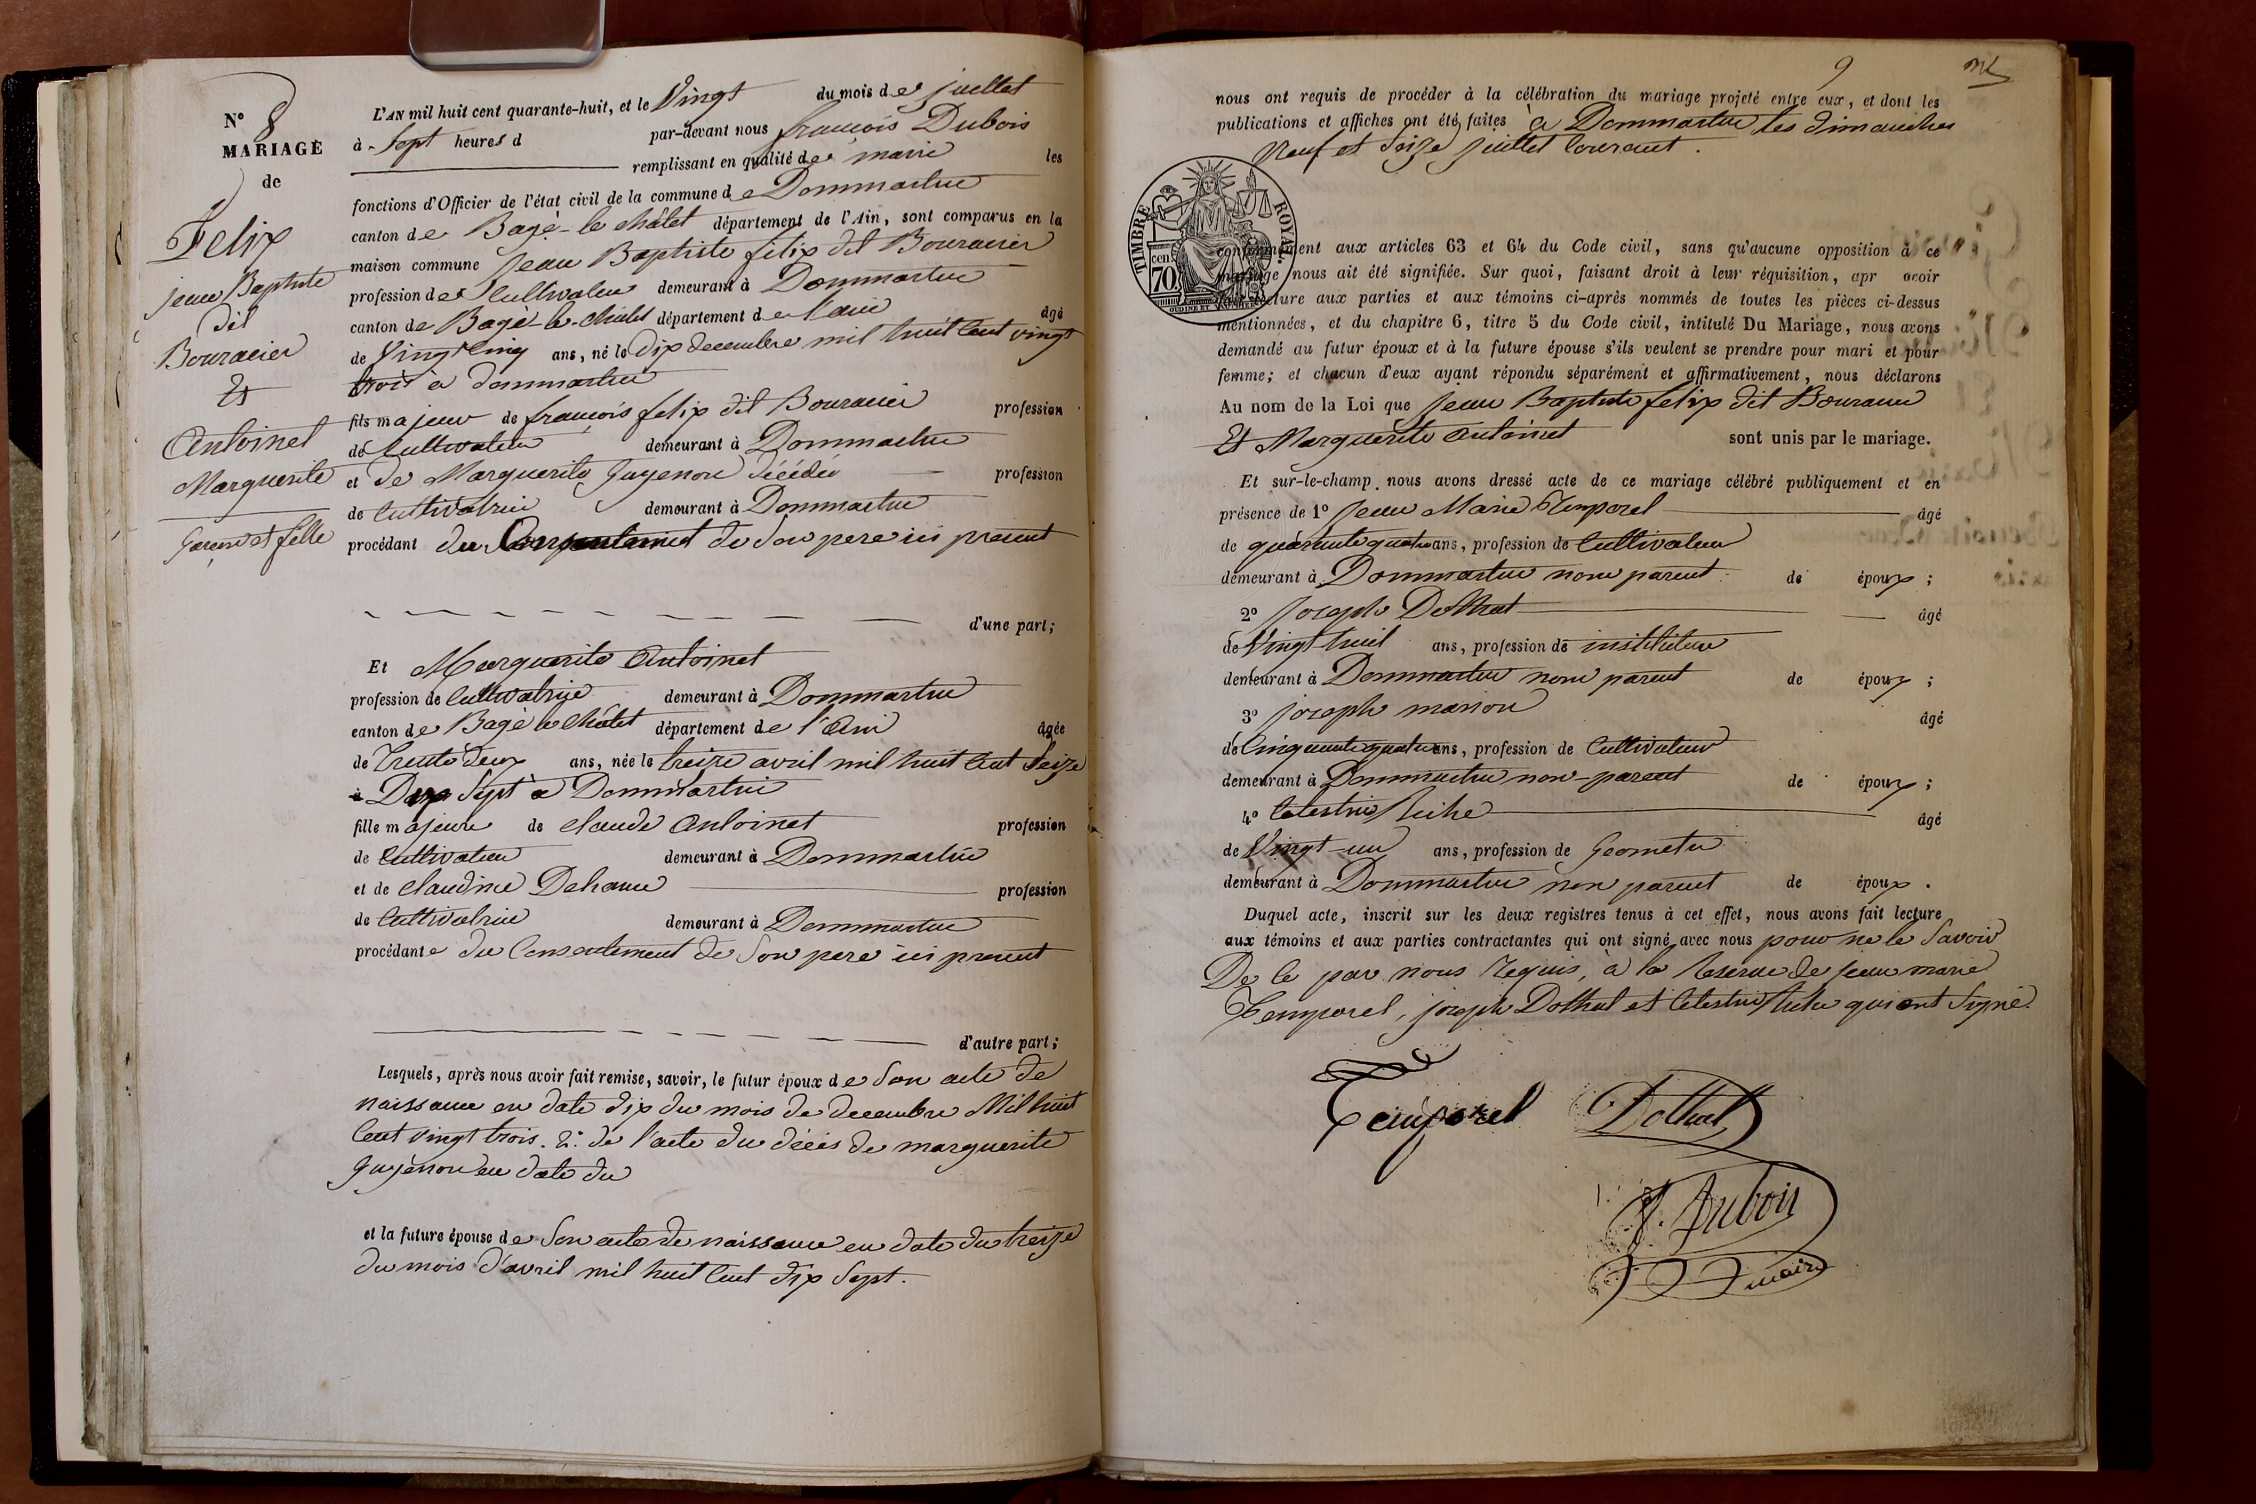 N° 8
MARIAGE
de
Felix
jean Baptiste
dit
Bouracier
Et
Antoinet
Marguerite
Garcon et fille
L'AN mil huit cent quarante-huit, et le Vingt du mois de juillet
à Sept heures d par-devant nous françois Dubois
remplissant en qualité de maire les
fonctions d'Officier de l'état civil de la commune de Dommartin
canton de Bagé-le-châtel département de l'Ain, sont comparus en la
maison commune Jean Baptiste felix dit Bouracier
profession de Cultivateur demeurant à Dommartin
canton de Bagé-le-chatel département de l'ain âgé
de Vingt cinq ans, né le dix decembre mil huit cent vingt
trois à dommartin
fils majeur de françois felix dit Bouracier profession
de Cultivateur demeurant à Dommartin
et de Marguerite Guyenon décédée profession
de Cultivatrice demeurant à Dommartin
procédant du Consentement de Son pere ici présent
d'une part;
Et Marguerite Antoinet
profession de Cultivatrice demeurant à Dommartin
canton de Bagé le châtel département de l'Ain âgée
de Trente deux ans, née le treize avril mil huit Cent Seize
à Dix Sept à Dommartin
fille majeure de claude Antoinet profession
de Cultivateur demeurant à Dommartin
et de claudine Dehaume profession
de Cultivatrice demeurant à Dommartin
procédante du Consentement de Son pere ici present
d'autre part;
Lesquels, après nous avoir fait remise, savoir, le futur époux de Son acte de
naissance en date dix du mois de decembre Mil huit
Cent Vingt trois. 2° de l'acte du décès de marguerite
Guyenon en date du
et la future épouse de Son acte de naissance en date du treize
du mois d'avril mil huit Cent dix Sept.
9
nous ont requis de procéder à la célébration du mariage projeté entre eux, et dont les
publications et affiches ont été faites à Dommartin les dimanches
Neuf et Seize juillet Courant.
TIMBRE ROYAL
70 cen.
conformément aux articles 63 et 64 du Code civil, sans qu'aucune opposition à ce
mariage nous ait été signifiée. Sur quoi, faisant droit à leur réquisition, apr avoir
lecture aux parties et aux témoins ci-après nommés de toutes les pièces ci-dessus
mentionnées, et du chapitre 6, titre 5 du Code civil, intitulé Du Mariage, nous avons
demandé au futur époux et à la future épouse s'ils veulent se prendre pour mari et pour
femme; et chacun d'eux ayant répondu séparément et affirmativement, nous déclarons
Au nom de la Loi que Jean Baptiste felix dit Bouracier
Et Marguerite Antoinet sont unis par le mariage.
Et sur-le-champ nous avons dressé acte de ce mariage célébré publiquement et en
présence de 1° Jean Marie Temporel âgé
de quarante quatre ans, profession de Cultivateur
demeurant à Dommartin non parent de époux;
2° Joseph Dothal âgé
de Vingt huit ans, profession de instituteur
demeurant à Dommartin non parent de époux;
3° joseph manon âgé
de Cinquante quatre ans, profession de Cultivateur
demeurant à Dommartin non-parent de époux;
4° Celestin âgé
de Vingt-un ans, profession de Geometre
demeurant à Dommartin non parent de époux.
Duquel acte, inscrit sur les deux registres tenus à cet effet, nous avons fait lecture
aux témoins et aux parties contractantes qui ont signé avec nous pour ne le Savoir
De ce par nous Requis, à la Reserve de jean marie
Temporel, joseph Dothal et Celestin qui ont Signé.
Temporel Dothal
f. Dubois
maire